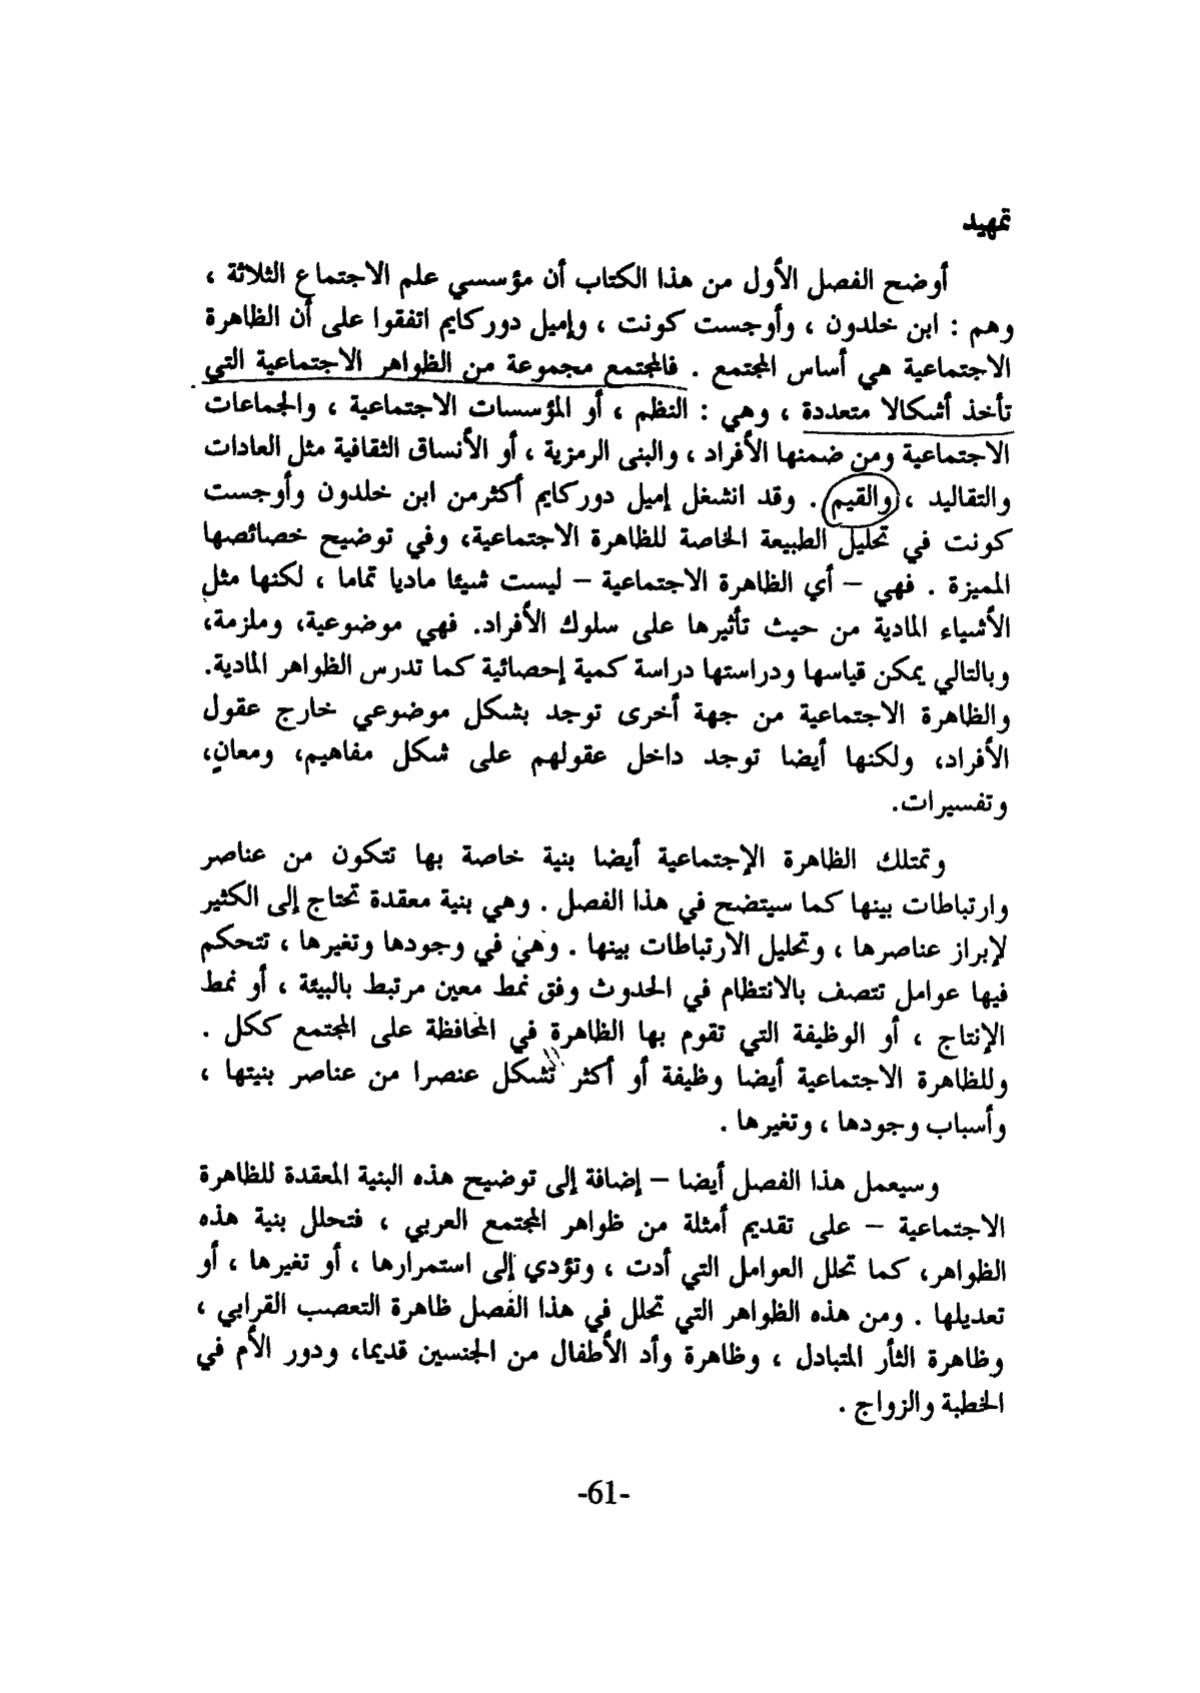 تمهيد
أوضح الفصل الأول من هذا الكتاب أن مؤسسي علم الاجتماع الثلاثة ،
وهم : ابن خلدون ، وأوجست كونت ، وإميل دوركايم اتفقوا على أن الظاهرة
الاجتماعية هي أساس المجتمع . فالمجتمع مجموعة من الظواهر الاجتماعية التي
تأخذ أشكالا متعددة ، وهي : النظم ، أو المؤسسات الاجتماعية ، والجماعات
الاجتماعية ومن ضمنها الأفراد ، والبنى الرمزية ، أو الأنساق الثقافية مثل العادات
والتقاليد ، والقيم . وقد انشغل إميل دوركايم أكثرمن ابن خلدون وأوجست
كونت في تحليل الطبيعة الخاصة للظاهرة الاجتماعية، وفي توضيح خصائصها
المميزة . فهي – أي الظاهرة الاجتماعية – ليست شيئا ماديا تماما ، لكنها مثل
الأشياء المادية من حيث تأثيرها على سلوك الأفراد. فهي موضوعية، وملزمة،
وبالتالي يمكن قياسها ودراستها دراسة كمية إحصائية كما تدرس الظواهر المادية.
والظاهرة الاجتماعية من جهة أخرى توجد بشكل موضوعي خارج عقول
الأفراد، ولكنها أيضا توجد داخل عقولهم على شكل مفاهيم، ومعانٍ،
وتفسيرات.
وتمتلك الظاهرة الإجتماعية أيضا بنية خاصة بها تتكون من عناصر
وارتباطات بينها كما سيتضح في هذا الفصل . وهي بنية معقدة تحتاج إلى الكثير
لإبراز عناصرها ، وتحليل الارتباطات بينها . وهي في وجودها وتغيرها ، تتحكم
فيها عوامل تتصف بالانتظام في الحدوث وفق نمط معين مرتبط بالبيئة ، أو نمط
الإنتاج ، أو الوظيفة التي تقوم بها الظاهرة في المحافظة على المجتمع ككل .
وللظاهرة الاجتماعية أيضا وظيفة أو أكثر تشكل عنصرا من عناصر بنيتها ،
وأسباب وجودها ، وتغيرها .
وسيعمل هذا الفصل أيضا – إضافة إلى توضيح هذه البنية المعقدة للظاهرة
الاجتماعية – على تقديم أمثلة من ظواهر المجتمع العربي ، فتحلل بنية هذه
الظواهر، كما تحلل العوامل التي أدت ، وتؤدي إلى استمرارها ، أو تغيرها ، أو
تعديلها . ومن هذه الظواهر التي تحلل في هذا الفصل ظاهرة التعصب القرابي ،
وظاهرة الثأر المتبادل ، وظاهرة وأد الأطفال من الجنسين قديما، ودور الأم في
الخطبة والزواج .
-61-